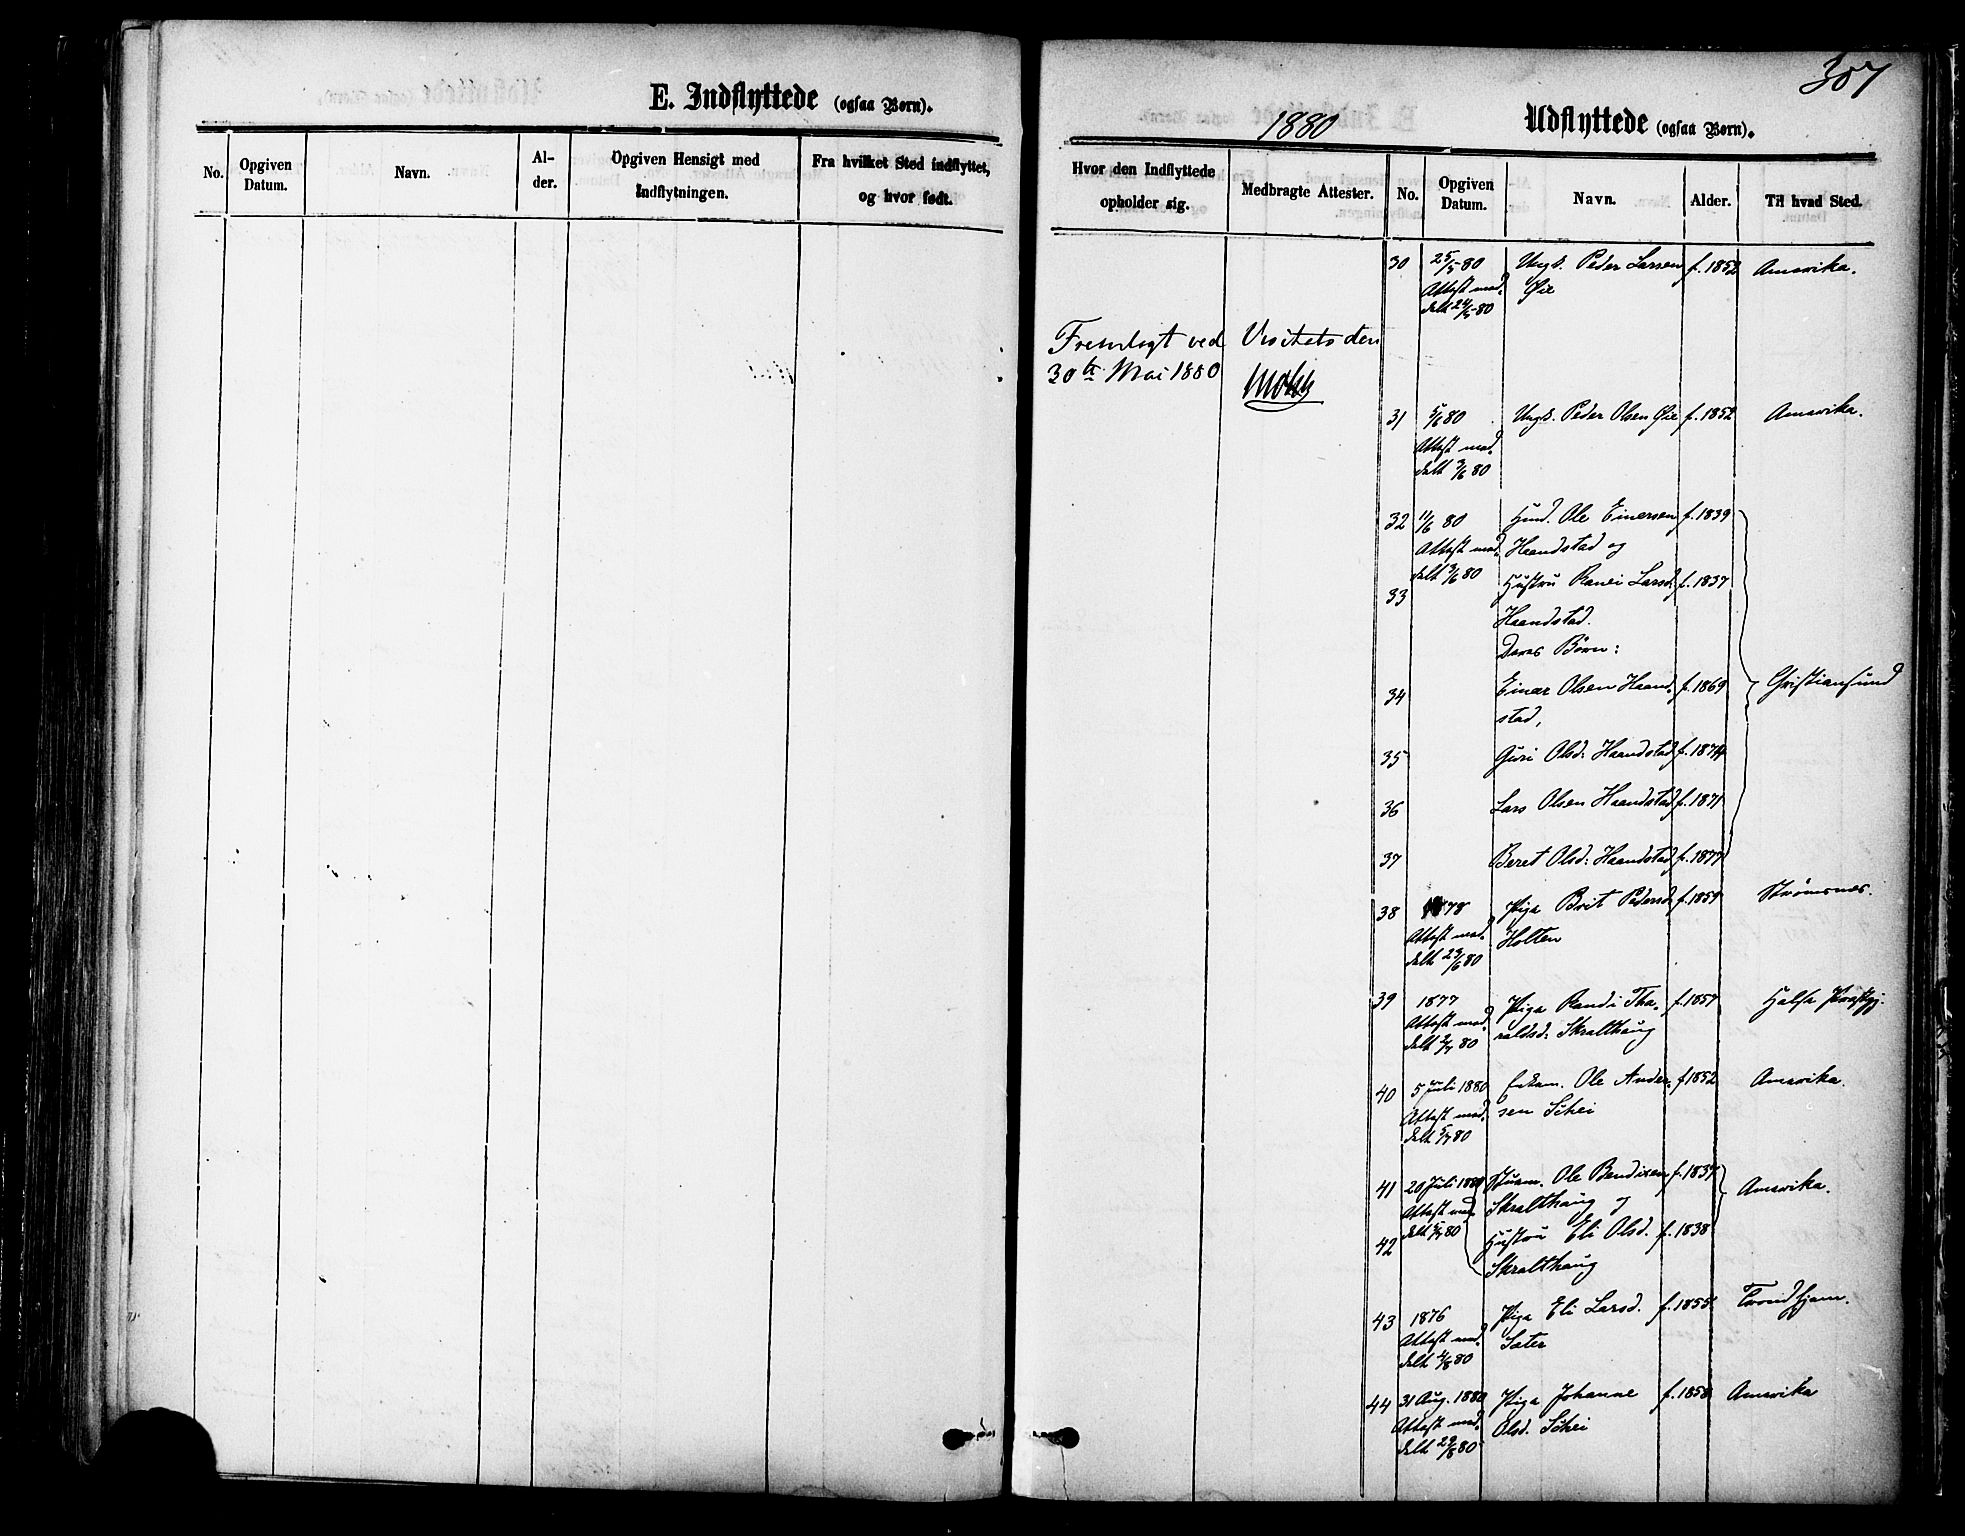 E. Indflyttede (ogsaa Børn).
No.
Opgiven Datum.
Navn.
Al-
der.
Opgiven Hensigt med
Indflytningen.
Fra hvilket Sted indflyttet,
og hvor født.
307
1880
Udflyttede (ogsaa Børn).
Hvor den Indflyttede
opholder sig.
Medbragte Attester.
No.
Opgiven Datum.
Navn.
Alder.
Til hvad Sted.
30 25/5-80 Ungk. Peder Larsen f. 1852 Amerika.
Attest med- Øie
delt 24/5-80
Fremlagt ved Visitats den
30te Mai 1880
31 5/6 80 Ungk. Peder Olsen Øie f. 1852 Amerika.
Attest med-
delt 3/6 80
32 11/6 80 Husd. Ole Einersen f. 1839
Attest med- Haandstad og
delt 3/6 80
33 Hustru Ranei Larsd. f. 1837
Haandstad.
Deres Børn:
34 Einar Olsen Haand- f. 1869 Christiansund
stad,
35 Guri Olsd: Haandstad f. 1874
36 Lars Olsen Haandstad f. 1871
37 Beret Olsd: Haandstad f. 1877
38 1878 Pige Brit Pedersd. f. 1859 Strømsnes.
Attest med- Holten
delt 29/6 80
39 1877 Pige Randi Tha- f. 1857 Halse Præstgj.
Attest med- raldsd: Skralthaug
delt 2/7 80
40 5 Juli 1880 Enkem. Ole Ander- f 1852 Amerika.
Attest med- sen Schei
delt 5/7 80
41 20 Juli 1880 Husm. Ole Bendixen f. 1837 Amerika.
Attest med- Skralthaug og
delt 5/7 80
42 Hustru Eli Olsd. f. 1838
Skralthaug
43 1876 Pige Eli Larsd. f. 1855 Trondhjem.
Attest med- Sæter
delt 4/8 80
44 31 Aug. 1880 Pige Johanne f. 1858 Amerika
Attest med- Olsd. Schei
delt 29/8 80